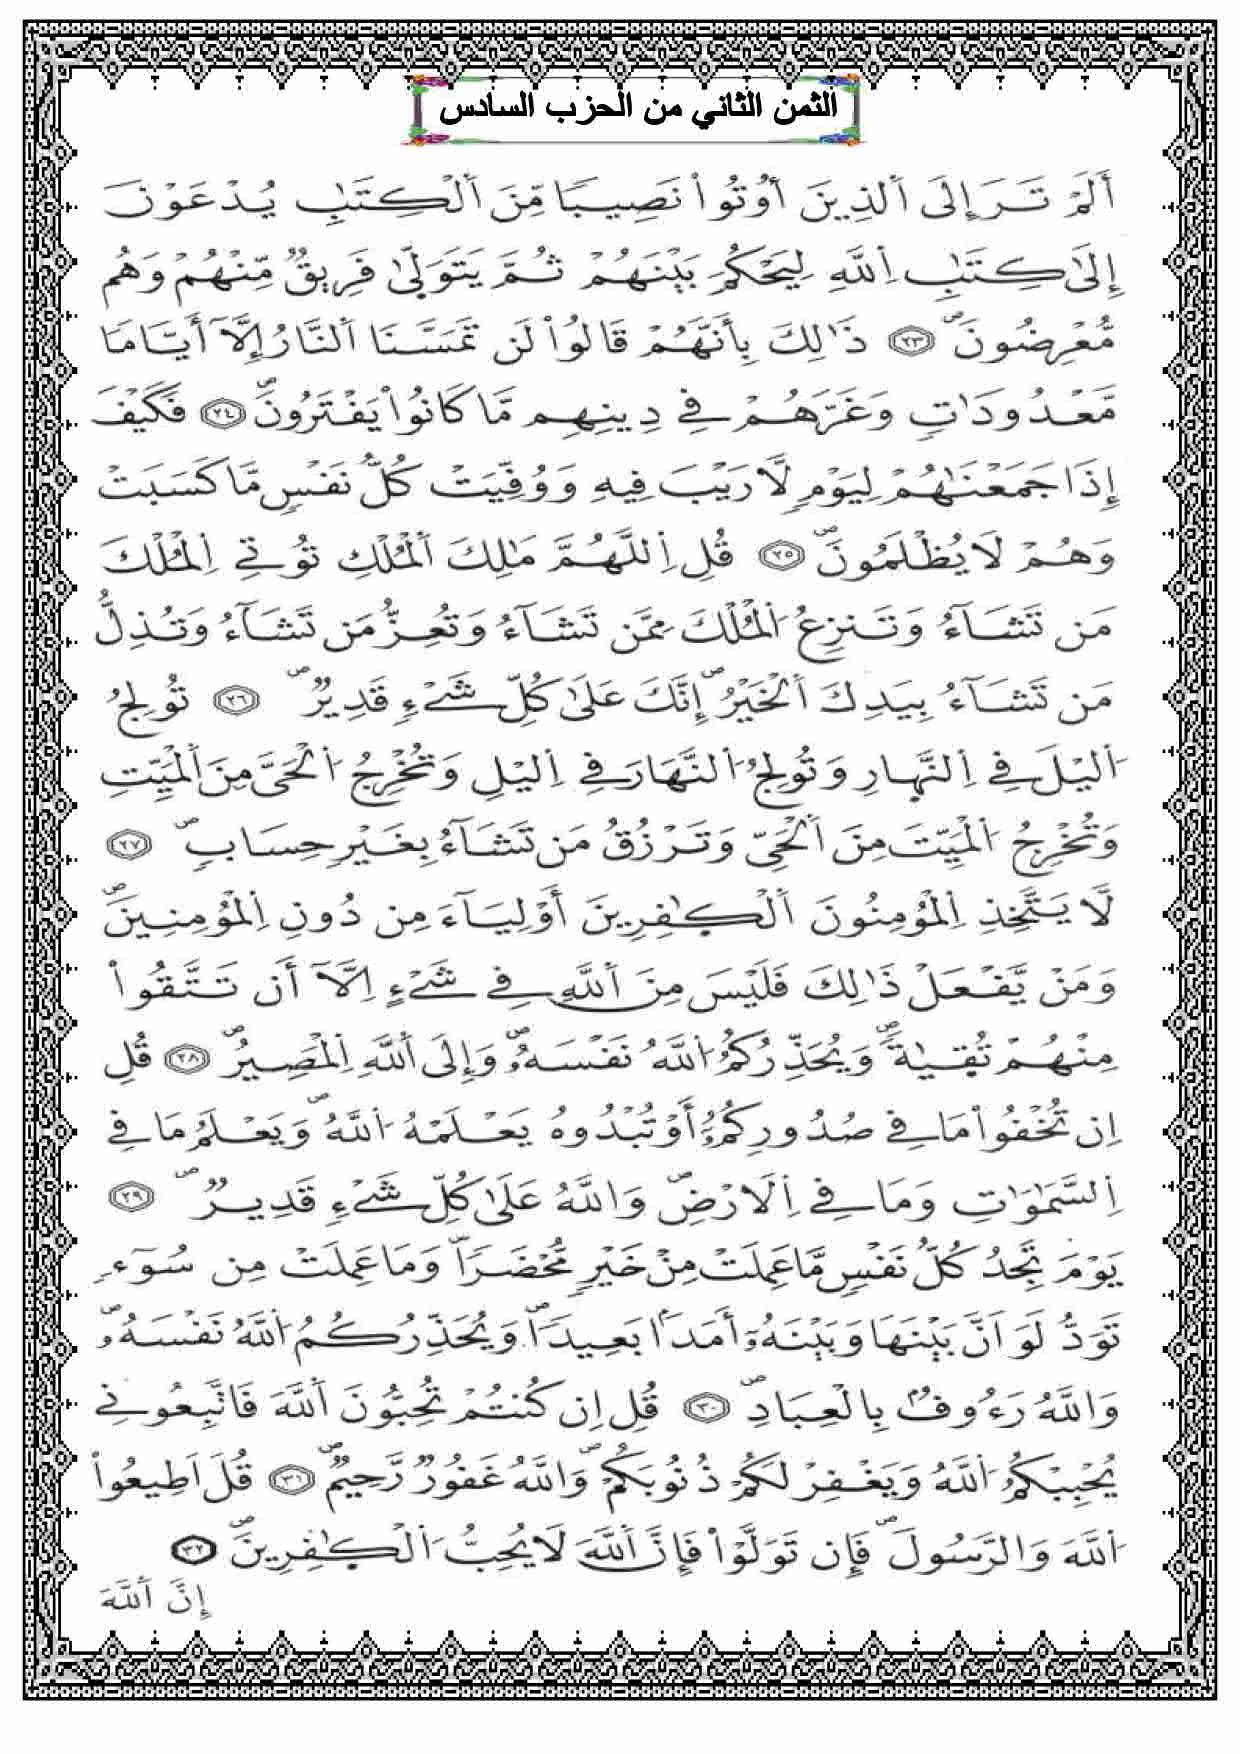 الثمن الثاني من الحزب السادس
أَلَمْ تَرَ إِلَى اَلذِينَ أُوتُواْ نَصِيباً مِّنَ اَلْكِتَٰبِ يُدْعَوْنَ
إِلَىٰ كِتَٰبِ اِللَّهِ لِيَحْكُمَ بَيْنَهُمْ ثُمَّ يَتَوَلَّىٰ فَرِيقٌ مِّنْهُمْ وَهُم
مُّعْرِضُونَۖ ٢٣ ذَٰلِكَ بِأَنَّهُمْ قَالُواْ لَن تَمَسَّنَا اَلنَّارُ إِلَّآ أَيَّاماً
مَّعْدُودَٰتٍ وَغَرَّهُمْ فِي دِينِهِم مَّا كَانُواْ يَفْتَرُونَۖ ٢٤ فَكَيْفَ
إِذَا جَمَعْنَٰهُمْ لِيَوْمٍ لَّا رَيْبَ فِيهِ وَوُفِّيَتْ كُلُّ نَفْسٍ مَّا كَسَبَتْ
وَهُمْ لَا يُظْلَمُونَۖ ٢٥ قُلِ اِللَّهُمَّ مَٰلِكَ اَلْمُلْكِ تُوتِي اِلْمُلْكَ
مَن تَشَآءُ وَتَنزِعُ اُلْمُلْكَ مِمَّن تَشَآءُ وَتُعِزُّ مَن تَشَآءُ وَتُذِلُّ
مَن تَشَآءُ بِيَدِكَ اَلْخَيْرُۖ إِنَّكَ عَلَىٰ كُلِّ شَےْءٍ قَدِيرٌۖ ٢٦ تُولِجُ
اُليْلَ فِي اِلنَّهارِ وَتُولِجُ اُلنَّهَارَ فِي اِليْلِ وَتُخْرِجُ اُلْحَيَّ مِنَ اَلْمَيِّتِ
وَتُخْرِجُ اُلْمَيِّتَ مِنَ اَلْحَيِّ وَتَرْزُقُ مَن تَشَآءُ بِغَيْرِ حِسَابٍۖ ٢٧
لَّا يَتَّخِذِ اِلْمُؤْمِنُونَ اَلْكَٰفِرِينَ أَوْلِيَآءَ مِن دُونِ اِلْمُؤْمِنِينَۖ
وَمَنْ يَّفْعَلْ ذَٰلِكَ فَلَيْسَ مِنَ اَللَّهِ فِي شَےْءٍ اِلَّآ أَن تَتَّقُواْ
مِنْهُمْ تُقِيٰةًۖ وَيُحَذِّرُكُمُ اُللَّهُ نَفْسَهُۥۖ وَإِلَى اَللَّهِ اِلْمَصِيرُۖ ٢٨ قُلِ
اِن تُخْفُواْ مَا فِي صُدُورِكُمُۥٓ أَوْ تُبْدُوهُ يَعْلَمْهُ اُللَّهُۖ وَيَعْلَمُ مَا فِي
اِلسَّمَٰوَٰتِ وَمَا فِي اِلَارْضِۖ وَاللَّهُ عَلَىٰ كُلِّ شَےْءٍ قَدِيرٌۖ ٢٩
يَوْمَ تَجِدُ كُلُّ نَفْسٍ مَّا عَمِلَتْ مِنْ خَيْرٍ مُّحْضَراًۖ وَمَا عَمِلَتْ مِن سُوٓءٍ
تَوَدُّ لَوَ اَنَّ بَيْنَهَا وَبَيْنَهُۥٓ أَمَداَۢ بَعِيداًۖ وَيُحَذِّرُكُمُ اُللَّهُ نَفْسَهُۥۖ
وَاللَّهُ رَءُوفُۢ بِالْعِبَادِۖ ٣٠ قُلِ اِن كُنتُمْ تُحِبُّونَ اَللَّهَ فَاتَّبِعُونِي
يُحْبِبْكُمُ اُللَّهُ وَيَغْفِرْ لَكُمْ ذُنُوبَكُمْۖ وَاللَّهُ غَفُورٌ رَّحِيمٌۖ ٣١ قُلَ اَطِيعُواْ
اُللَّهَ وَالرَّسُولَۖ فَإِن تَوَلَّوْاْ فَإِنَّ اَللَّهَ لَا يُحِبُّ اُلْكَٰفِرِينَۖ ٣٢
إِنَّ اَللَّهَ